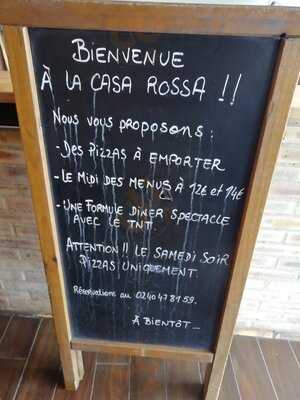 BIENVENUE
À LA CASA ROSSA !!
Nous vous proposons :
- DES PIZZAS À EMPORTER
- LE MIDI DES MENUS À 12€ et 14€
- UNE FORMULE DINER SPECTACLE
AVEC LE TNT.
ATTENTION !! LE SAMEDI SOIR
PIZZAS UNIQUEMENT.
Réservations au 02 40 47 81 59.
À BIENTÔT_